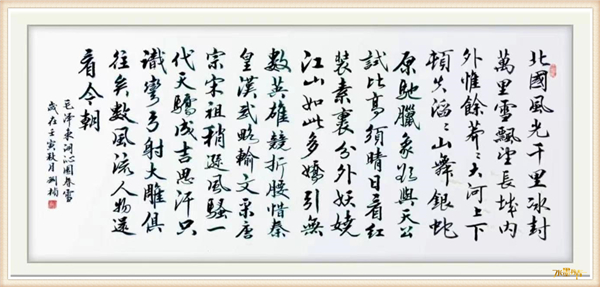 北國風光千里冰封
萬里雪飄望長城内
外惟餘莽〻大河上下
頓失滔〻山舞銀蛇
原馳臘象欲與天公
試比高須晴日看紅
裝素裹分外妖嬈
江山如此多嬌引無
數英雄競折腰惜秦
皇漢武略輸文采唐
宗宋祖稍遜風騷一
代天驕成吉思汗只
識彎弓射大雕俱
往矣數風流人物還
看今朝
毛泽東词沁園春雪
歲在壬寅秋月